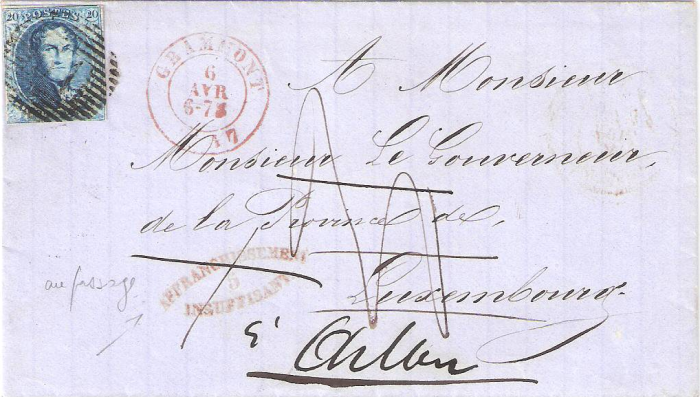 20 POSTES 20
GRAMMONT
6
AVR
6-7S
17
A Monsieur
Monsieur Le Gouverneur
de la Province de
Luxembourg
AFFRANCHISSEMENT
5
INSUFFISANT
à Arlon
au passage